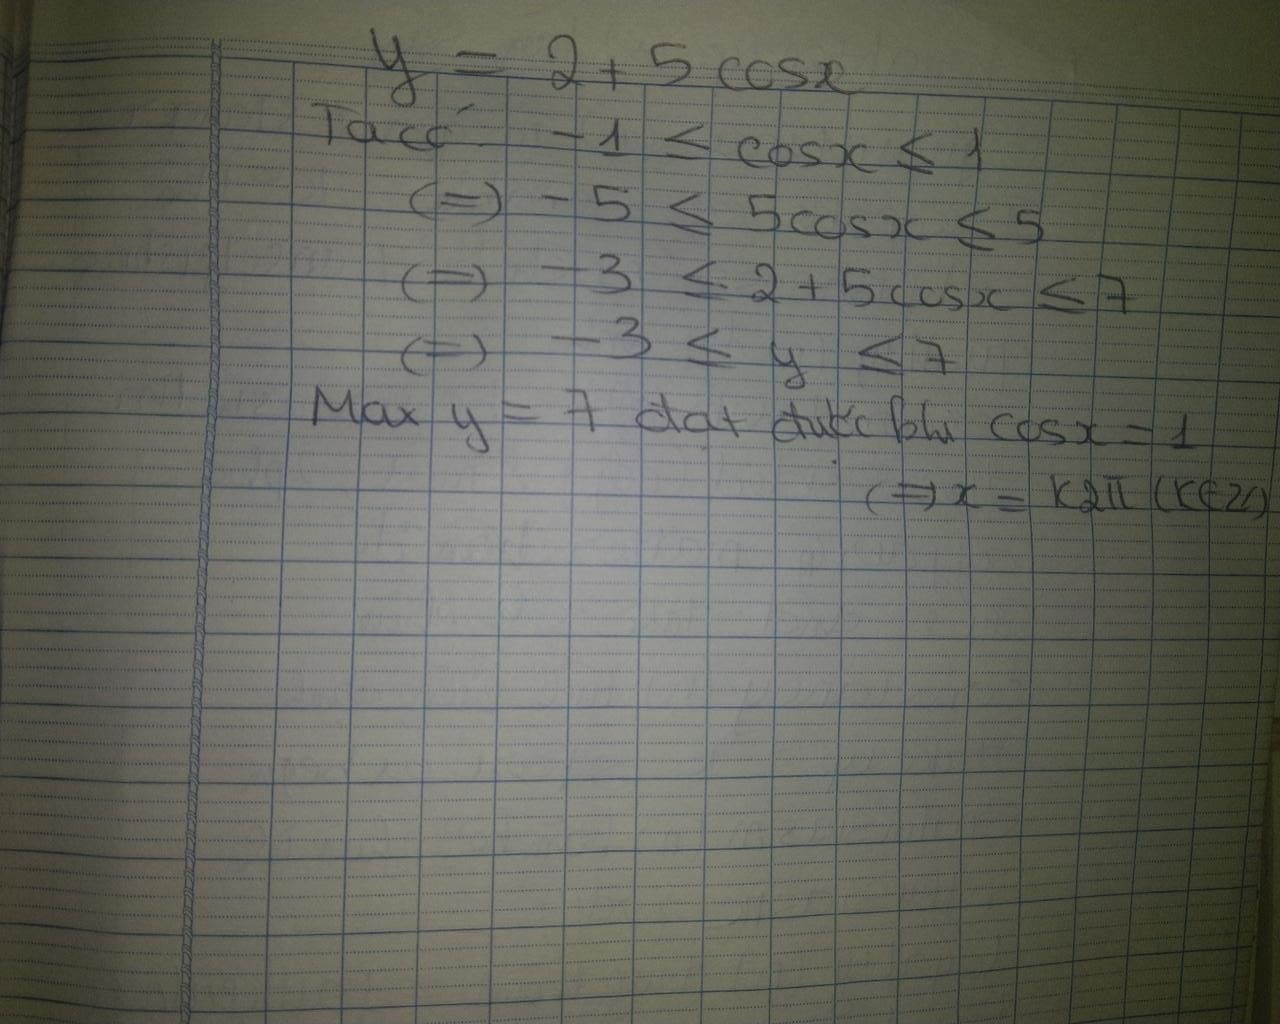 y = 2 + 5 cosx
Ta có -1 ≤ cosx ≤ 1
(=) -5 ≤ 5cosx ≤ 5
(=) -3 ≤ 2 + 5cosx ≤ 7
(=) -3 ≤ y ≤ 7
Max y = 7 đạt được khi cosx = 1
(=) x = k2π (k∈Z)